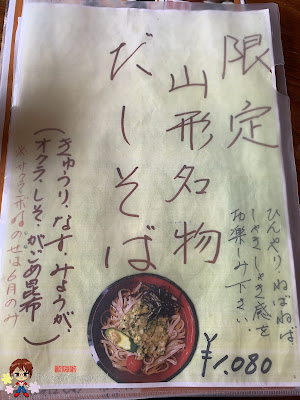 限定
山形名物
だしそば
ひんやり、ねばねば
しゃきしゃき感を
お楽しみ下さい
(きゅうり、なす、みょうが、
オクラ、しそ、がごめ昆布)
¥1,080